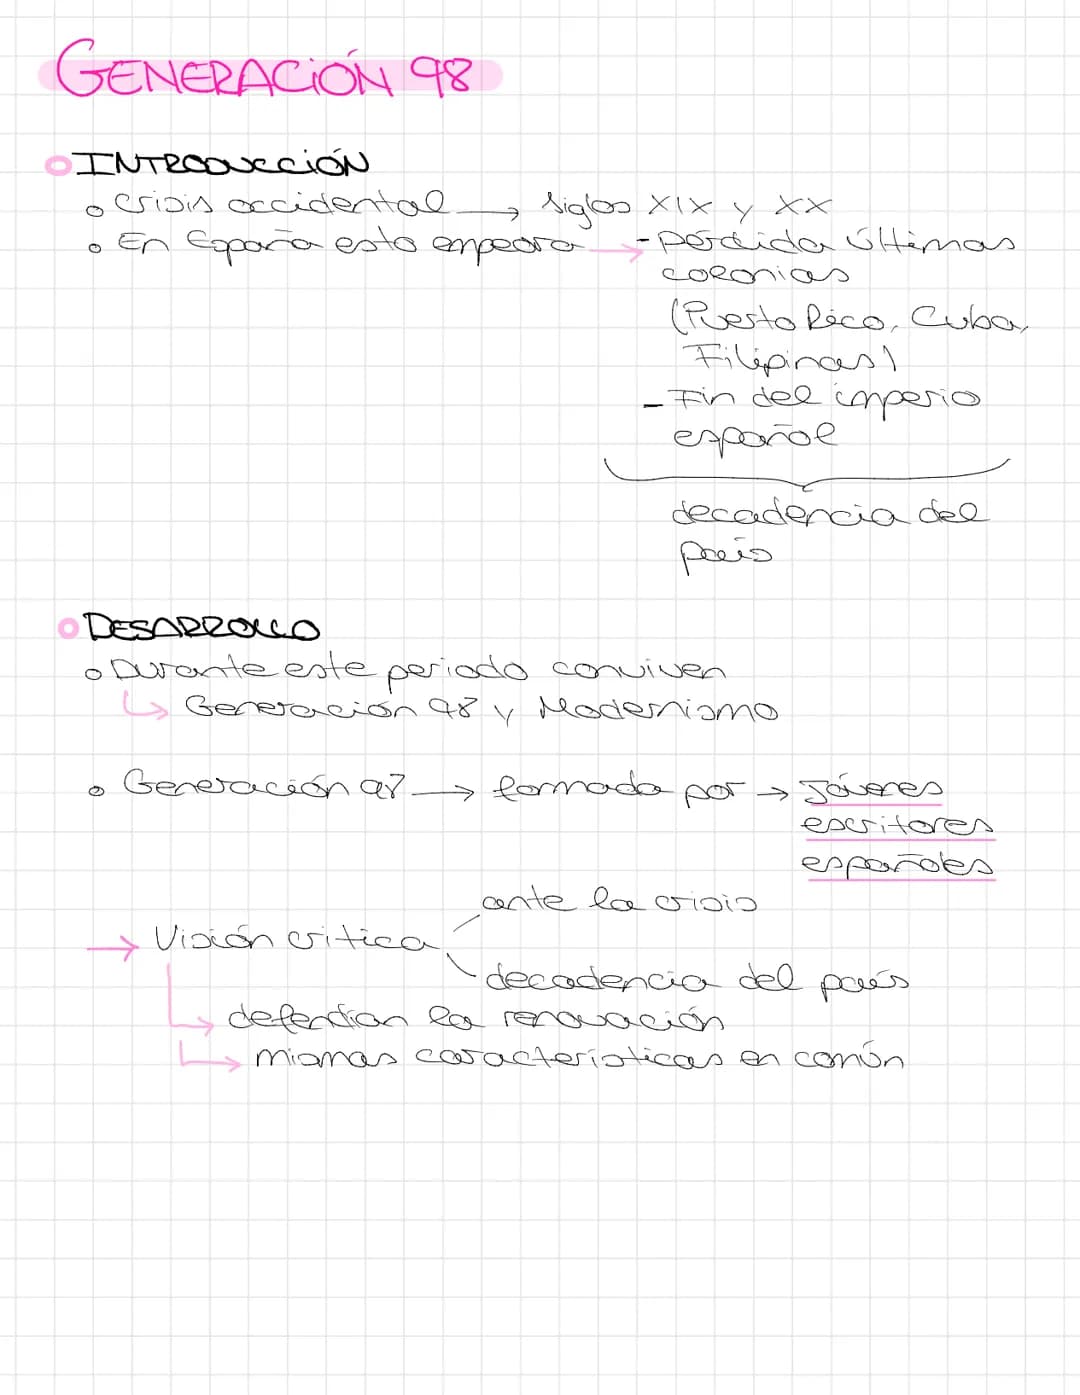 GENERACIÓN 98
INTRODUCCIÓN
Crisis occidental → siglos XIX y XX
En España esto empeora → - pérdida últimas
colonias
(Puerto Rico, Cuba,
Filipinas)
- Fin del imperio
español
decadencia del
país
DESARROLLO
Durante este periodo conviven
↳ Generación 98 y Modernismo
Generación 98 → formada por → Jóvenes
escritores
españoles
ante la crisis
→ Visión crítica
decadencia del país
↳ defendían la renovación
↳ mismas características en común